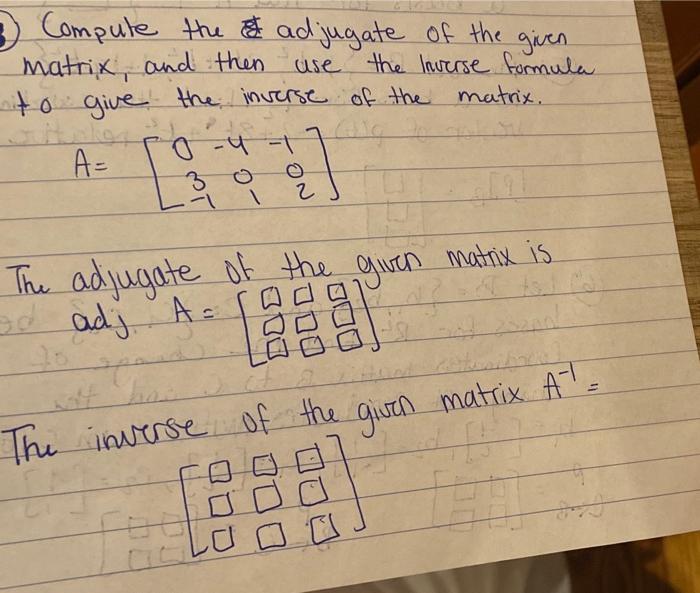 Compute the adjugate of the given
matrix, and then use the Inverse formula
to give the inverse of the matrix.
A = [ 0 -4 -1
3 0 0
-1 1 2 ]
The adjugate of the given matrix is
adj A = [ □ □ □
□ □ □
□ □ □ ]
The inverse of the given matrix A⁻¹ =
[ □ □ □
□ □ □
□ □ □ ]